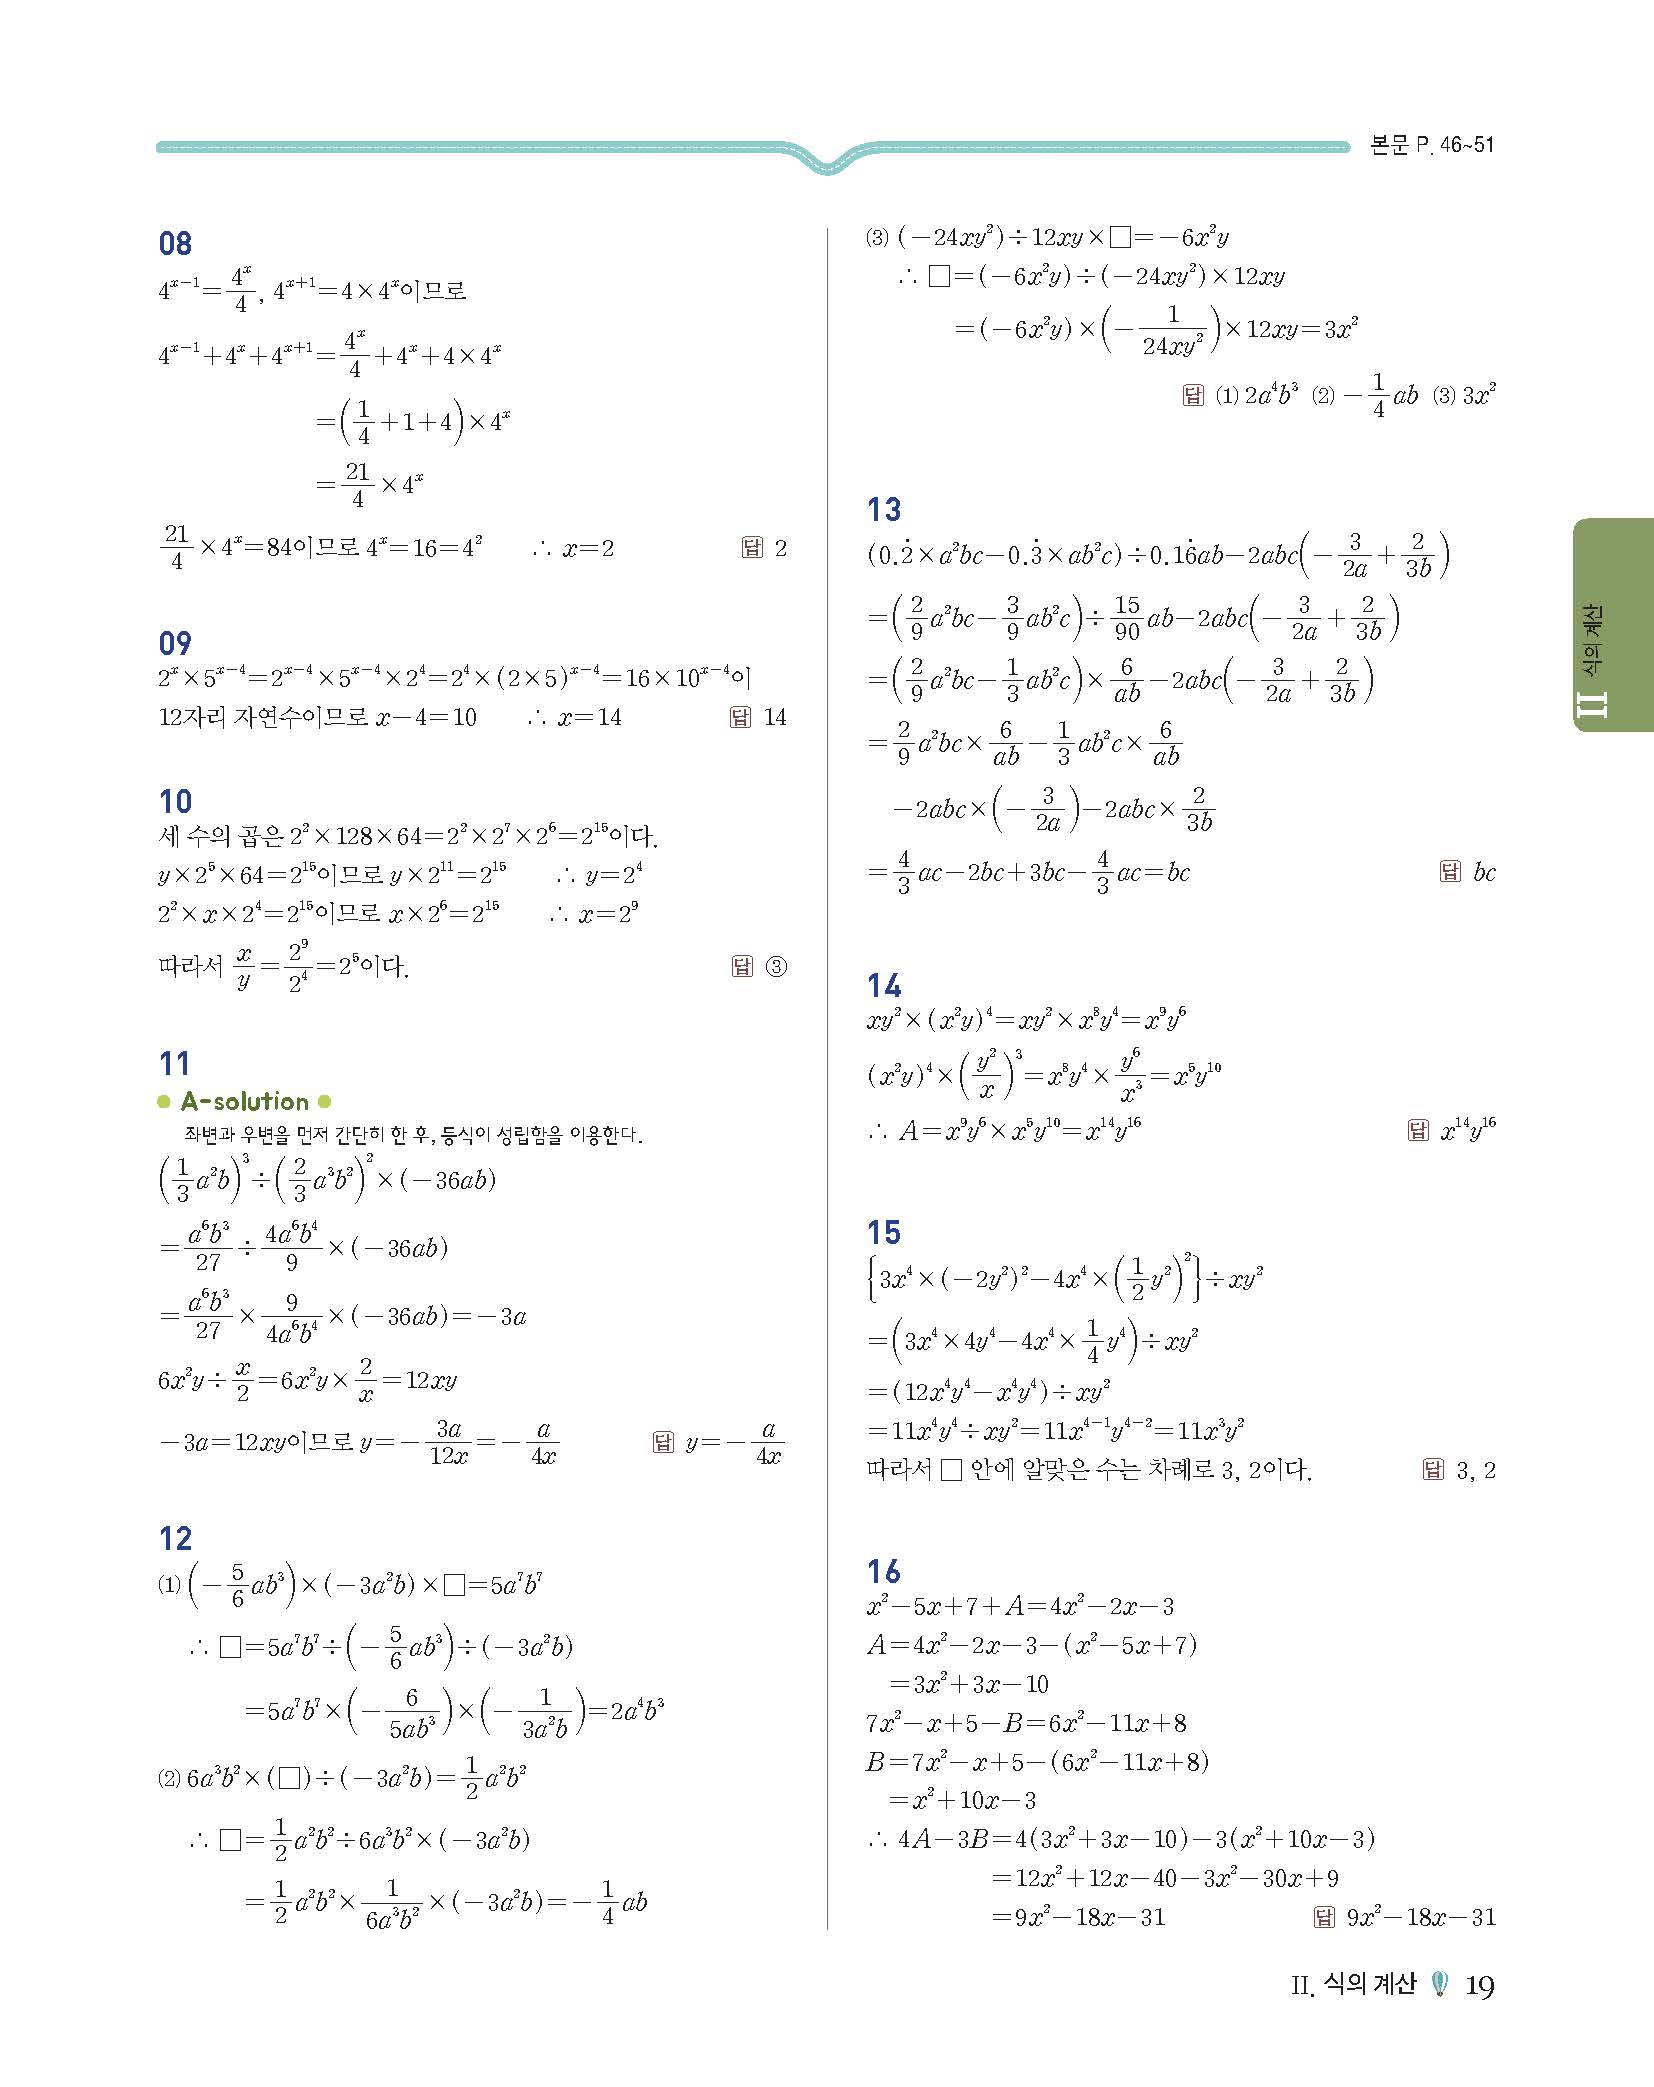 본문 P. 46~51
08
4^{x-1}=\frac{4^x}{4}, 4^{x+1}=4×4^x이므로
4^{x-1}+4^x+4^{x+1}=\frac{4^x}{4}+4^x+4×4^x
=(\frac{1}{4}+1+4)×4^x
=\frac{21}{4}×4^x
\frac{21}{4}×4^x=84이므로 4^x=16=4^2 ∴ x=2 답 2
09
2^x×5^{x-4}=2^{x-4}×5^{x-4}×2^4=2^4×(2×5)^{x-4}=16×10^{x-4}이
12자리 자연수이므로 x-4=10 ∴ x=14 답 14
10
세 수의 곱은 2^2×128×64=2^2×2^7×2^6=2^{15}이다.
y×2^5×64=2^{15}이므로 y×2^{11}=2^{15} ∴ y=2^4
2^2×x×2^4=2^{15}이므로 x×2^6=2^{15} ∴ x=2^9
따라서 \frac{x}{y}=\frac{2^9}{2^4}=2^5이다. 답 ③
11
A-solution
좌변과 우변을 먼저 간단히 한 후, 등식이 성립함을 이용한다.
(\frac{1}{3}a^2b)^3÷(\frac{2}{3}a^3b^2)^2×(-36ab)
=\frac{a^6b^3}{27}÷\frac{4a^6b^4}{9}×(-36ab)
=\frac{a^6b^3}{27}×\frac{9}{4a^6b^4}×(-36ab)=-3a
6x^2y÷\frac{x}{2}=6x^2y×\frac{2}{x}=12xy
-3a=12xy이므로 y=-\frac{3a}{12x}=-\frac{a}{4x} 답 y=-\frac{a}{4x}
12
⑴ (-\frac{5}{6}ab^3)×(-3a^2b)×□=5a^7b^7
∴ □=5a^7b^7÷(-\frac{5}{6}ab^3)÷(-3a^2b)
=5a^7b^7×(-\frac{6}{5ab^3})×(-\frac{1}{3a^2b})=2a^4b^3
⑵ 6a^3b^2×(□)÷(-3a^2b)=\frac{1}{2}a^2b^2
∴ □=\frac{1}{2}a^2b^2÷6a^3b^2×(-3a^2b)
=\frac{1}{2}a^2b^2×\frac{1}{6a^3b^2}×(-3a^2b)=-\frac{1}{4}ab
⑶ (-24xy^2)÷12xy×□=-6x^2y
∴ □=(-6x^2y)÷(-24xy^2)×12xy
=(-6x^2y)×(-\frac{1}{24xy^2})×12xy=3x^2
답 ⑴ 2a^4b^3 ⑵ -\frac{1}{4}ab ⑶ 3x^2
13
(0.\dot{2}×a^2bc-0.\dot{3}×ab^2c)÷0.1\dot{6}ab-2abc(-\frac{3}{2a}+\frac{2}{3b})
=(\frac{2}{9}a^2bc-\frac{3}{9}ab^2c)÷\frac{15}{90}ab-2abc(-\frac{3}{2a}+\frac{2}{3b})
=(\frac{2}{9}a^2bc-\frac{1}{3}ab^2c)×\frac{6}{ab}-2abc(-\frac{3}{2a}+\frac{2}{3b})
=\frac{2}{9}a^2bc×\frac{6}{ab}-\frac{1}{3}ab^2c×\frac{6}{ab}
-2abc×(-\frac{3}{2a})-2abc×\frac{2}{3b}
=\frac{4}{3}ac-2bc+3bc-\frac{4}{3}ac=bc 답 bc
14
xy^2×(x^2y)^4=xy^2×x^8y^4=x^9y^6
(x^2y)^4×(\frac{y^2}{x})^3=x^8y^4×\frac{y^6}{x^3}=x^5y^{10}
∴ A=x^9y^6×x^5y^{10}=x^{14}y^{16} 답 x^{14}y^{16}
15
{3x^4×(-2y^2)^2-4x^4×(\frac{1}{2}y^2)^2}÷xy^2
=(3x^4×4y^4-4x^4×\frac{1}{4}y^4)÷xy^2
=(12x^4y^4-x^4y^4)÷xy^2
=11x^4y^4÷xy^2=11x^{4-1}y^{4-2}=11x^3y^2
따라서 □ 안에 알맞은 수는 차례로 3, 2이다. 답 3, 2
16
x^2-5x+7+A=4x^2-2x-3
A=4x^2-2x-3-(x^2-5x+7)
=3x^2+3x-10
7x^2-x+5-B=6x^2-11x+8
B=7x^2-x+5-(6x^2-11x+8)
=x^2+10x-3
∴ 4A-3B=4(3x^2+3x-10)-3(x^2+10x-3)
=12x^2+12x-40-3x^2-30x+9
=9x^2-18x-31 답 9x^2-18x-31
II 식의 계산
II. 식의 계산 19